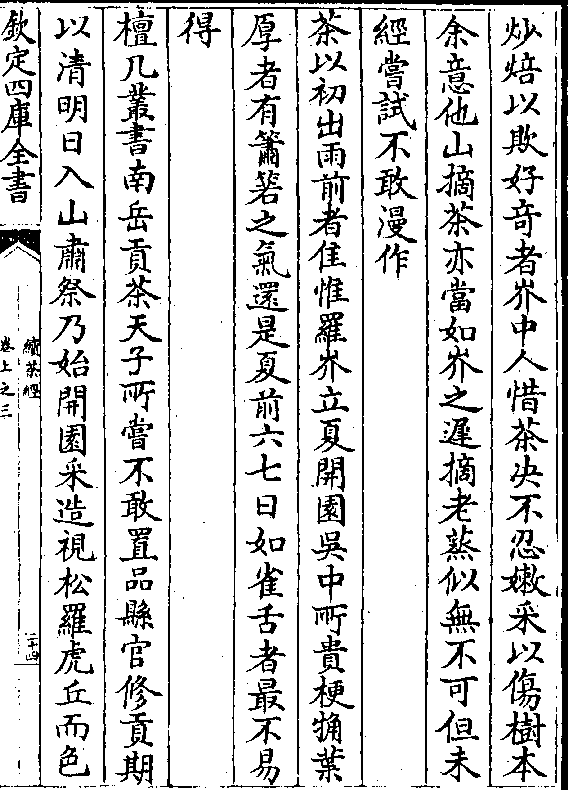 炒焙以欺好竒者岕中人惜茶决不忍嫩采以傷樹本
余意他山摘茶亦當如岕之遲摘老蒸似無不可但未
經嘗試不敢漫作
茶以初出雨前者佳惟羅岕立夏開園吳中所貴梗觕葉
厚者有簫箬之氣還是夏前六七日如雀舌者最不易
得
檀几叢書南岳貢茶天子所嘗不敢置品縣官修貢期
以清明日入山肅祭乃始開園采造視松羅虎丘而色
欽定四庫全書
續茶經
卷上之三
三十四